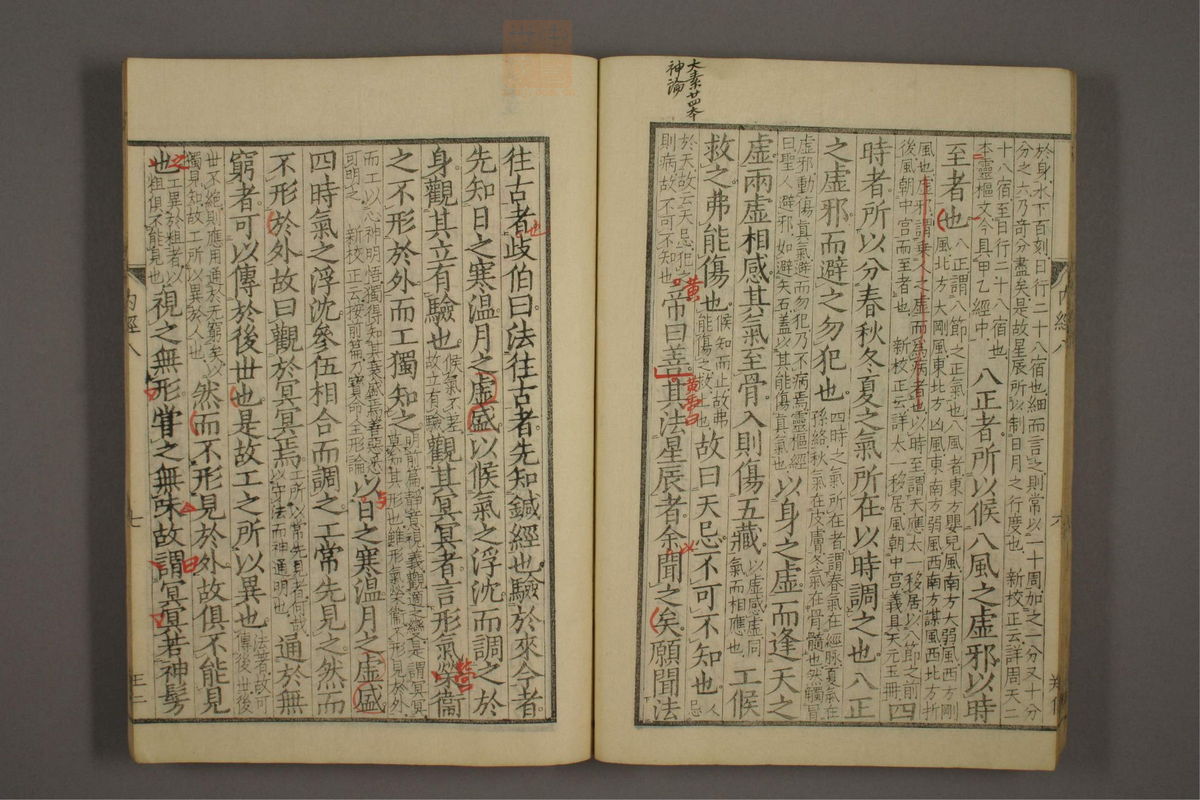 大素廿四本
神論
於身水下百刻日行二十八宿也細而言之則常以一十周加之一分又十分
分之六乃奇分盡矣是故星辰所以制日月之行度也　新校正云詳周天二
十八宿至日行二十八宿也
本靈樞文今具甲乙經中
八正者所以候八風之虛邪以時
至者也
八正謂八節之正氣也八風者東方嬰兒風南方大弱風西方剛
風北方大剛風東北方凶風東南方弱風西南方謀風西北方折
風也虛邪謂乘人之虛而爲病者也以時至謂天應太一移居以八節之前
後風朝中宮而至者也　新校正云詳太一移居風朝中宮義具天元玉册
四
時者所以分春秋冬夏之氣所在以時調之也八正
之虛邪而避之勿犯也
四時之氣所在者謂春氣在經脉夏氣在
孫絡秋氣在皮膚冬氣在骨髓也然觸冒
虛邪動傷真氣避而勿犯乃不病焉靈樞經
曰聖人避邪如避矢石蓋以其能傷真氣也
以身之虛而逢天之
虛兩虛相感其氣至骨入則傷五藏
以虛感虛同
氣而相應也
工候
救之弗能傷也
候知而止故弗
能傷之救止也
故曰天忌不可不知也
人忌
於天故云天忌犯之
則病故不可不知也
帝曰善其法星辰者余聞之矣願聞法
內經八
六
往古者歧伯曰法往古者先知鍼經也驗於來今者
也
先知日之寒温月之虛盛以候氣之浮沈而調之於
身觀其立有驗也
候氣不差
故立有驗
觀其冥冥者言形氣榮衞
營
之不形於外而工獨知之
明前篇靜意視義觀適之變是謂冥冥
莫知其形也雖形氣榮衞不形見於外
而工以心神明悟獨得知其衰盛焉善惡悉
可明之　新校正云按前篇乃寶命全形論
以日之寒温月之虛盛
四時氣之浮沈參伍相合而調之工常先見之然而
不形於外故曰觀於冥冥焉
工所以常先見者何哉
以守法而神通明也
通於無
窮者可以傳於後世也是故工之所以異也
法著故可
傳後世後
世不絶則應用通於无窮矣以
獨見知故工所以異於人也
然而不形見於外故俱不能見
也
工異於粗者以
粗俱不能見也
視之無形嘗之無味故謂冥冥若神髣
內經八
七